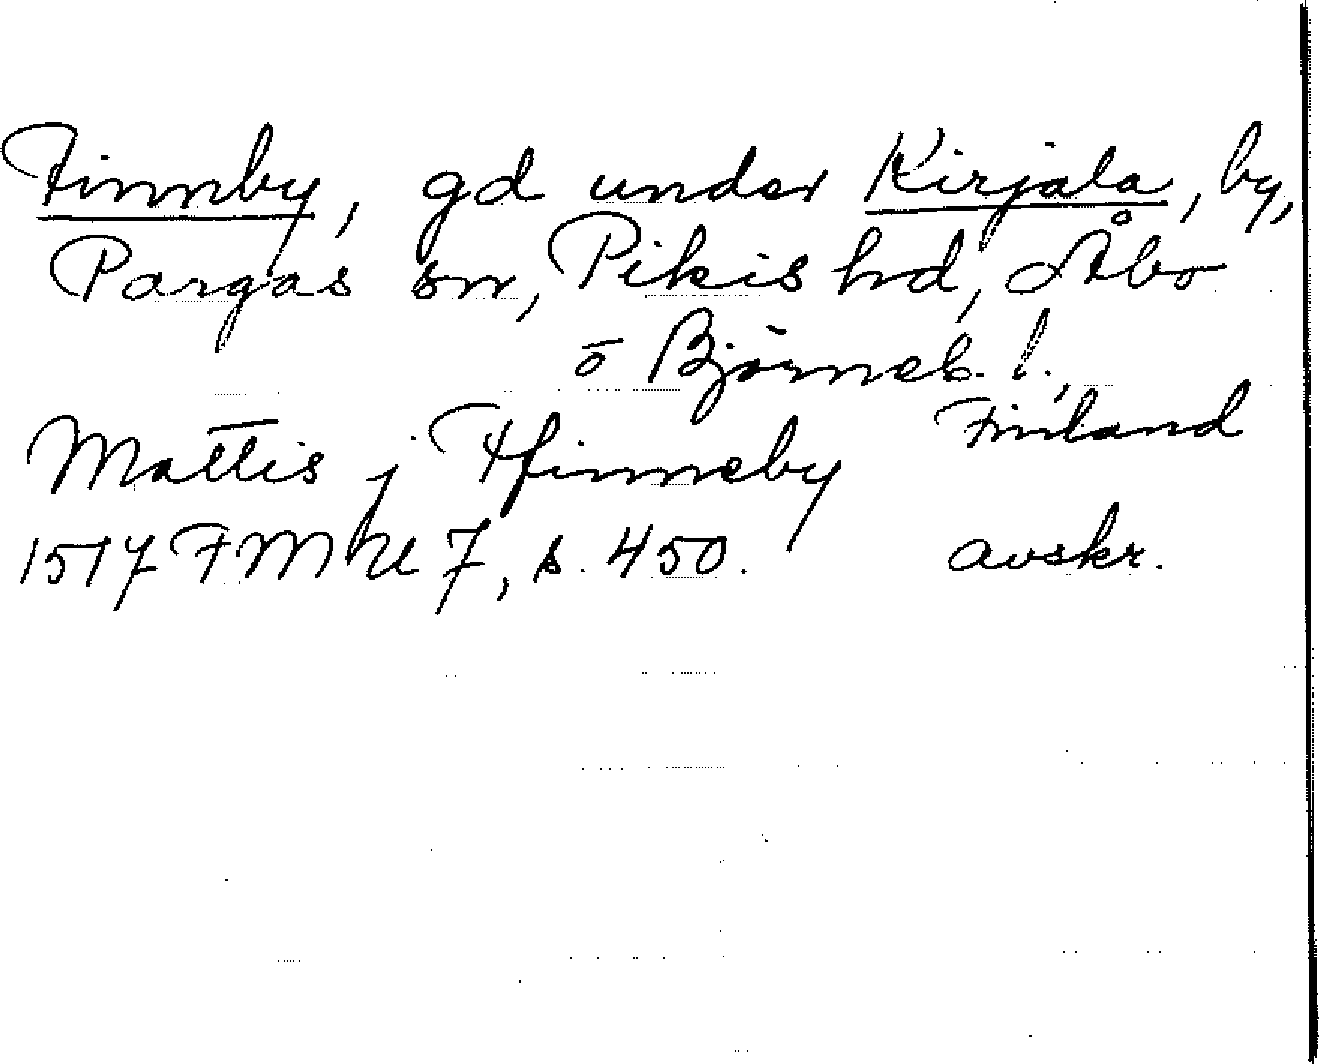 Finnby, gd under Kirjala, by,
Pargas sn, Pikis hd, Åbo
o Björneb. l.,
Finland
Mattis j Ffinneby
1517 FMU 7, s. 450. avskr.